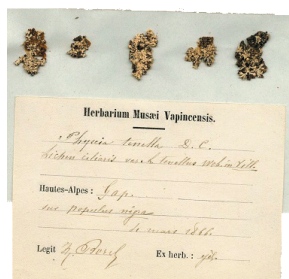 Herbarium Musæi Vapincensis.
Physcia tenella D. C.
Lichen ciliaris var. b tenellus
Hautes-Alpes : Gap
sur populus nigra
mars 1866
Legit
Ex herb. :